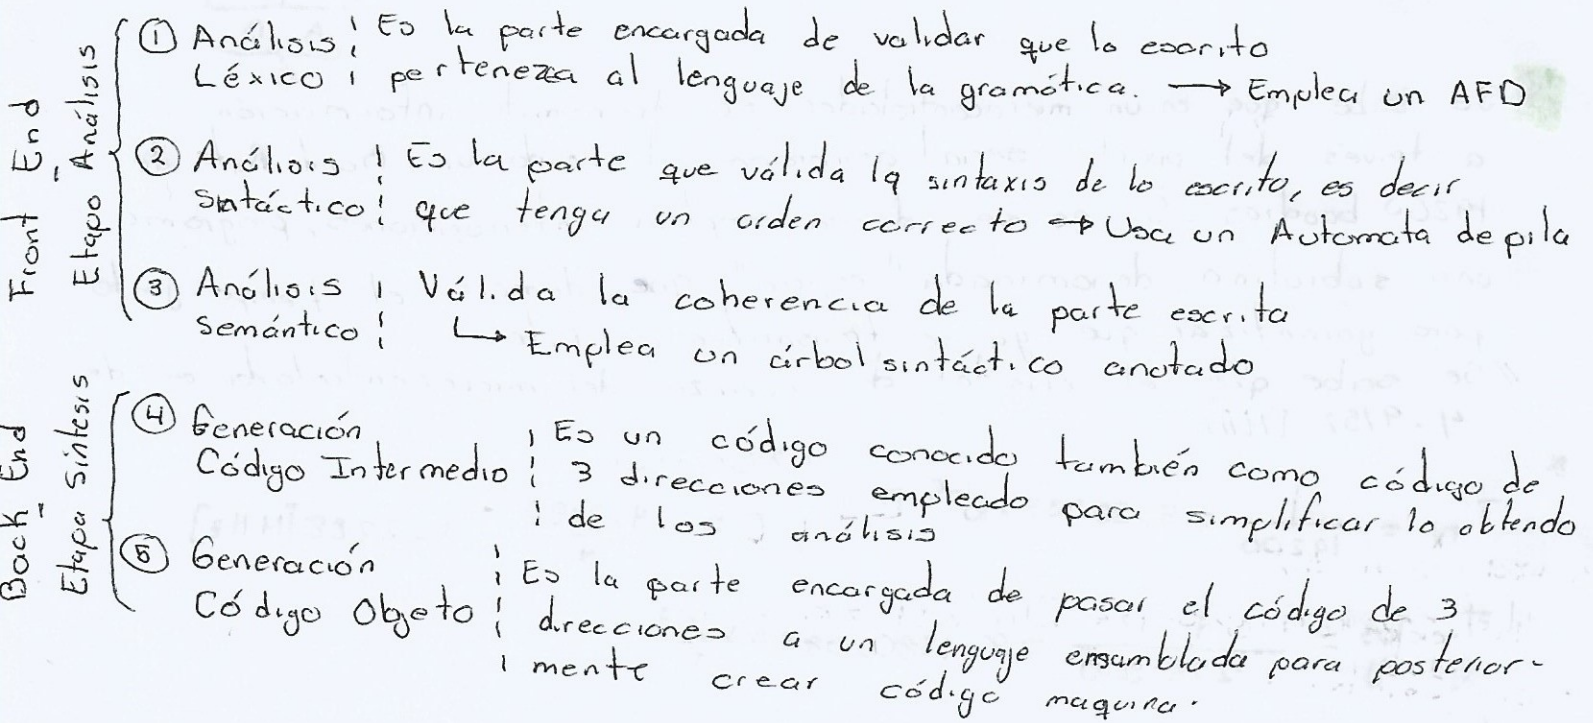 Front End
Etapa Análisis
① Análisis Léxico ¦ Es la parte encargada de validar que lo escrito
pertenezca al lenguaje de la gramática. → Emplea un AFD
② Análisis Sintáctico ¦ Es la parte que válida la sintaxis de lo escrito, es decir
que tenga un orden correcto → Usa un Automata de pila
③ Análisis Semántico ¦ Válida la coherencia de la parte escrita
↳ Emplea un árbol sintáctico anotado
Back End
Etapa Síntesis
④ Generación Código Intermedio ¦ Es un código conocido también como código de
3 direcciones empleado para simplificar lo obtendo
de los análisis
⑤ Generación Código Objeto ¦ Es la parte encargada de pasar el código de 3
direcciones a un lenguaje ensamblada para posterior-
mente crear código maquina.